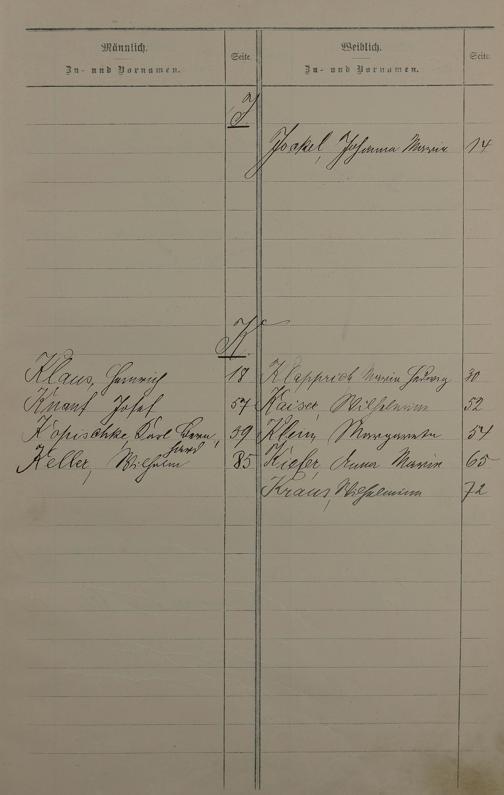 Männlich.
Zu- und Vornamen.
Seite
Weiblich.
Zu- und Vornamen.
Seite
J
Jockel, Johanna Maria 14
K
Klaus, Heinrich 18
Klapprich Maria Hedwig 30
Knauf Josef 54
Kaiser, Wilhelmine 52
Kopischke, Karl Bern, 39
hard
Klein Margareta 54
Keller, Wilhelm 85
Kiefer, Anna Maria 65
Kraus, Wilhelmina 72